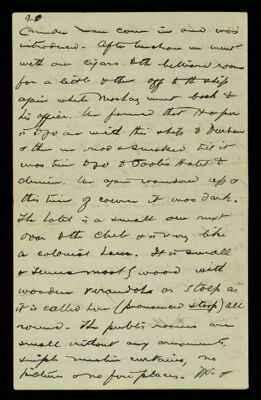 20
came in and was
introduced. After luncheon we went
with our cigars to the billiard room
for a little & then off to the ship
again while went back to
his office. We found that Harper
is to go on with the ship to Durban
& then we read & smoked till it
was time to go to Hotel to
dinner. We again wandered up &
this time of course it was dark.
The Hotel is a small one next
door to the Club & is very like
a colonial house. It is small
& mostly wood with
wooden verandahs or stoep as
it is called here (pronounced stoop) all
round. The public rooms are
small without any ornaments,
simple muslin curtains, no
pictures no fire places. We